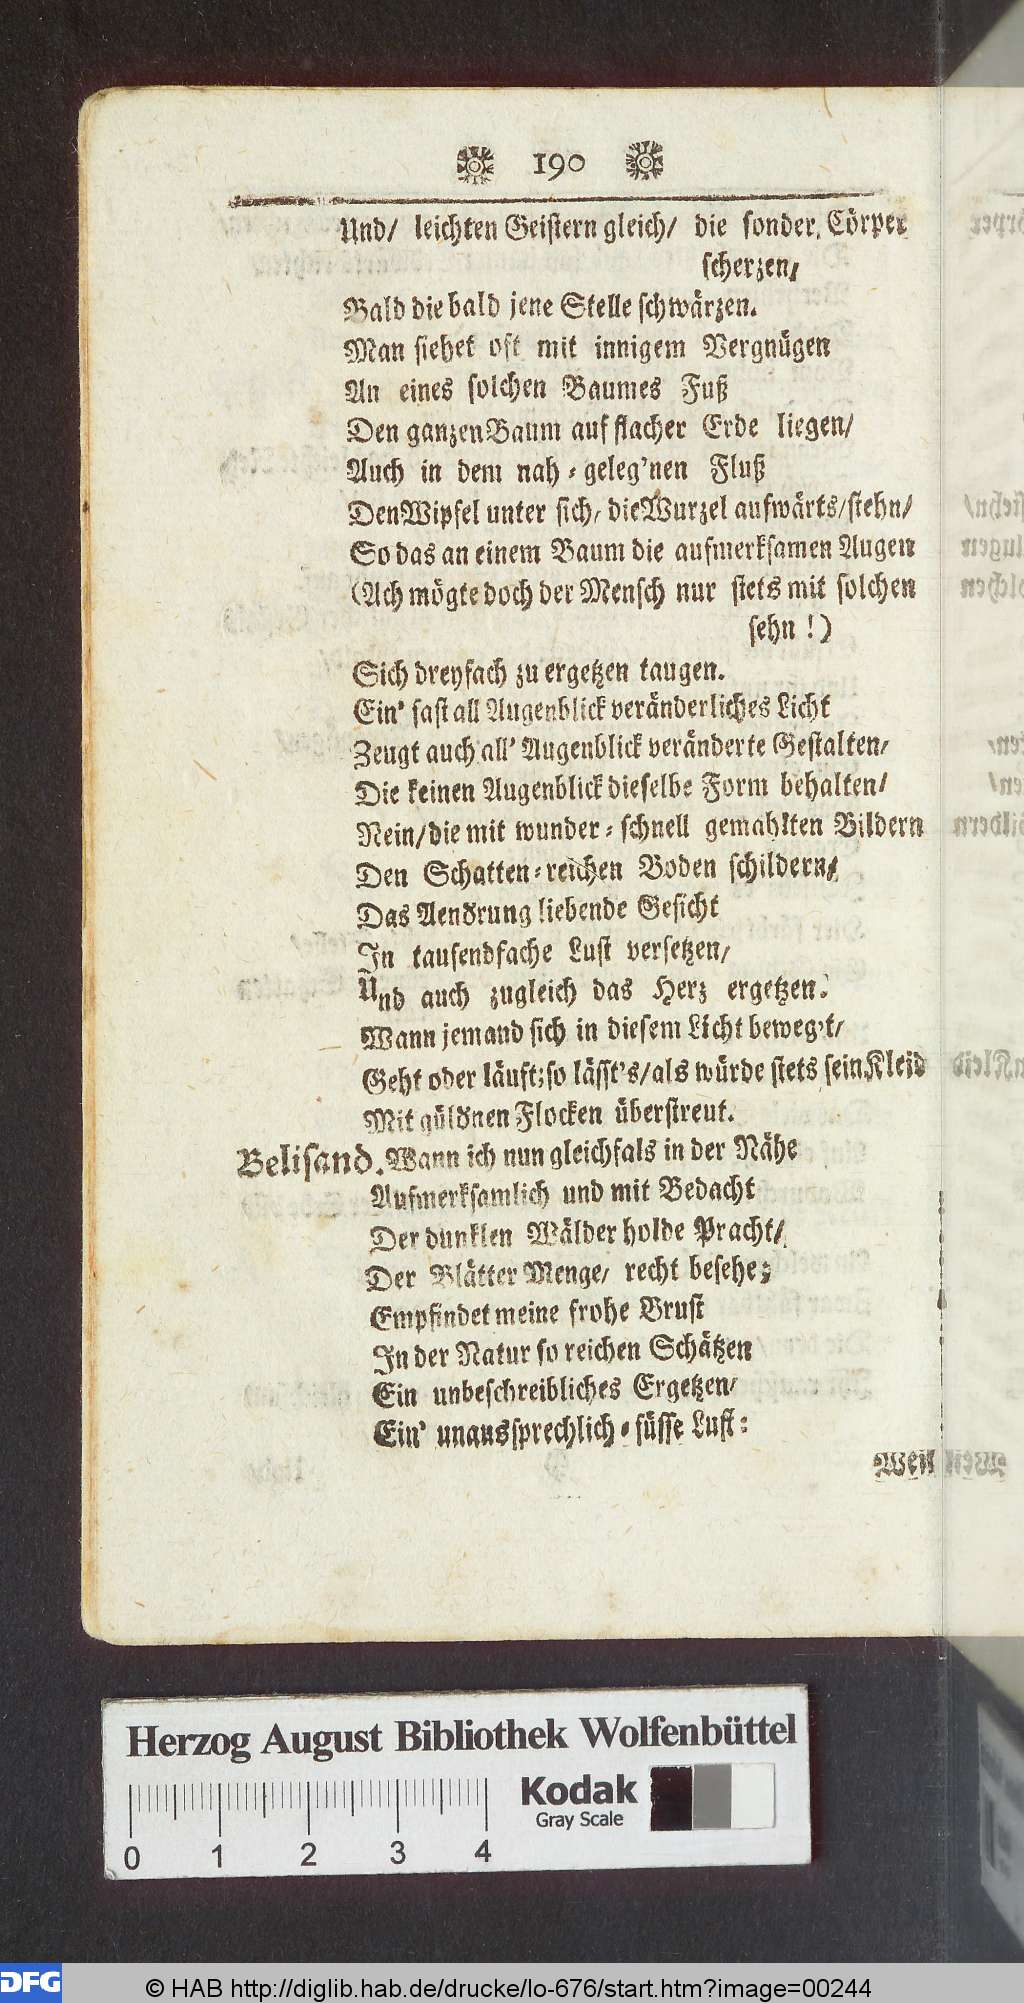 190
Und/ leichten Geistern gleich/ die sonder Cörper
scherzen/
Bald die bald jene Stelle schwärzen.
Man siehet oft mit innigem Vergnügen
An eines solchen Baumes Fuß
Den ganzen Baum auf flacher Erde liegen/
Auch in dem nah-geleg'nen Fluß
Den Wipfel unter sich/ die Wurzel aufwärts/ stehn/
So das an einem Baum die aufmerksamen Augen
(Ach mögte doch der Mensch nur stets mit solchen
sehn!)
Sich dreyfach zu ergetzen taugen.
Ein' fast all Augenblick veränderliches Licht
Zeugt auch all' Augenblick veränderte Gestalten/
Die keinen Augenblick dieselbe Form behalten/
Nein/ die mit wunder-schnell gemahlten Bildern
Den Schatten-reichen Boden schildern/
Das Aendrung liebende Gesicht
In tausendfache Lust versetzen/
Und auch zugleich das Herz ergetzen.
Wann jemand sich in diesem Licht beweg't/
Geht oder läuft; so lässt's/ als würde stets sein Kleid
Mit güldnen Flocken überstreut.
Belisand. Wann ich nun gleichfals in der Nähe
Aufmerksamlich und mit Bedacht
Der dunklen Wälder holde Pracht/
Der Blätter Menge/ recht besehe;
Empfindet meine frohe Brust
In der Natur so reichen Schätzen
Ein unbeschreibliches Ergetzen/
Ein' unaussprechlich-süsse Lust:
Weil
Herzog August Bibliothek Wolfenbüttel
Kodak
Gray Scale
0 1 2 3 4
DFG
© HAB http://diglib.hab.de/drucke/lo-676/start.htm?image=00244